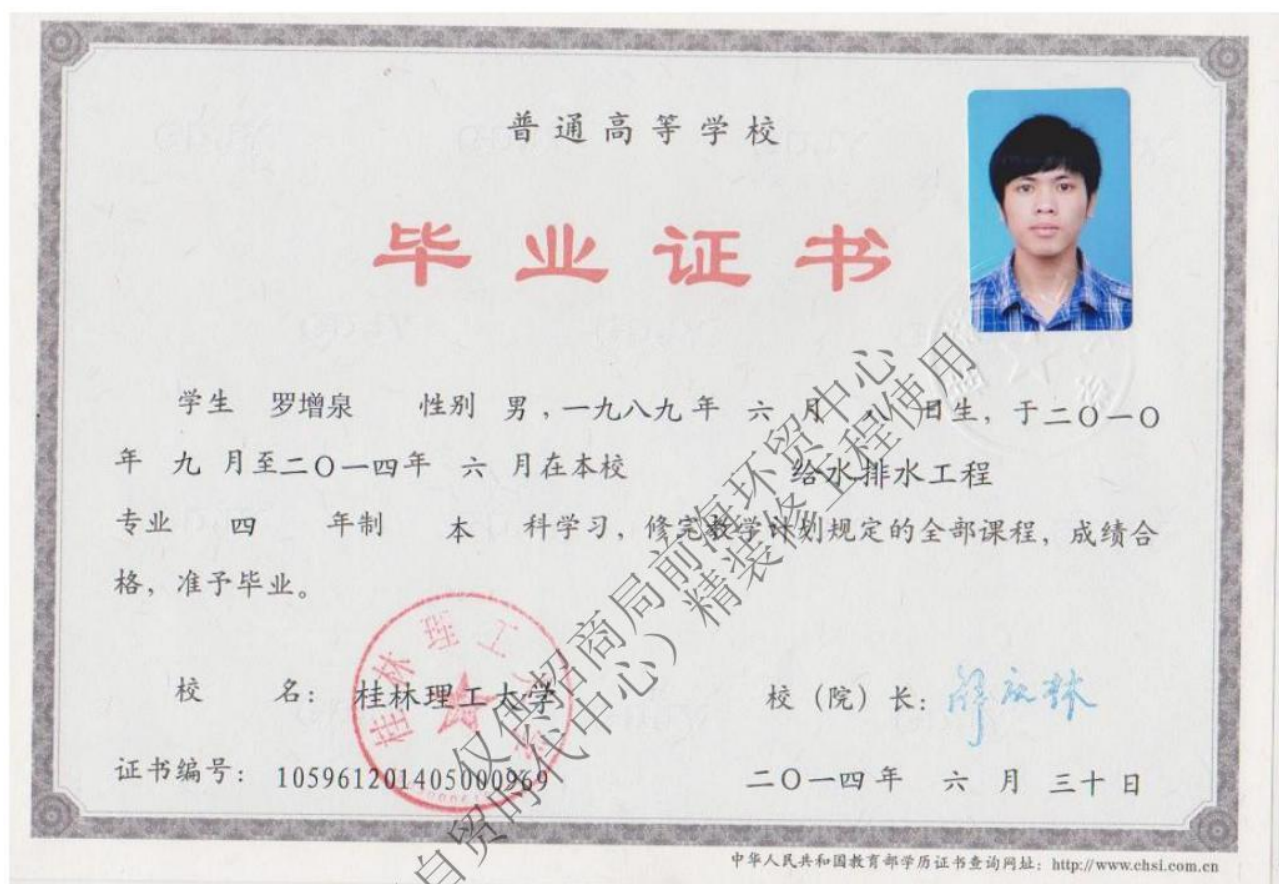 普通高等学校
毕业证书
学生 罗增泉 性别 男，一九八九年 六 月 八 日生，于二〇一〇
年 九 月至二〇一四年 六 月在本校 给水排水工程
专业 四 年制 本 科学习，修完教学计划规定的全部课程，成绩合
格，准予毕业。
校 名：桂林理工大学
校（院）长：
证书编号：105961201405000969
二〇一四年 六 月 三十 日
中华人民共和国教育部学历证书查询网址：http://www.chsi.com.cn
桂林理工大学
仅供招商局前海环贸中心
自贸时代中心）精装修工程使用